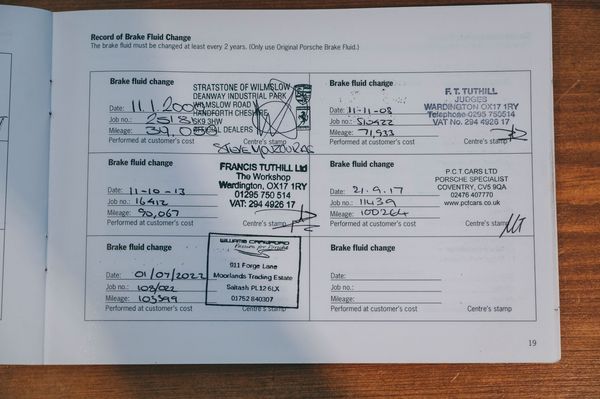 Record of Brake Fluid Change
The brake fluid must be changed at least every 2 years. (Only use Original Porsche Brake Fluid.)
Brake fluid change
STRATSTONE OF WILMSLOW
DEANWAY INDUSTRIAL PARK
WILMSLOW ROAD
HANDFORTH CHESHIRE
SK9 3HW
OFFICIAL DEALERS
Date: 11.1.200
Job no.: 2518
Mileage: 39,05
Performed at customer's cost
Centre's stamp
Brake fluid change
F.T. TUTHILL
JUDGES
WARDINGTON OX17 1RY
Telephone 0295 750514
VAT No. 294 4926 17
Date: 11-11-08
Job no.:
Mileage: 71,933
Performed at customer's cost
Centre's stamp
Brake fluid change
FRANCIS TUTHILL Ltd
The Workshop
Wardington, OX17 1RY
01295 750 514
VAT: 294 4926 17
Date: 11-10-13
Job no.: 16412
Mileage: 90,067
Performed at customer's cost
Centre's stamp
Brake fluid change
P.C.T. CARS LTD
PORSCHE SPECIALIST
COVENTRY, CV5 9QA
02476 407770
www.pctcars.co.uk
Date: 21.9.17
Job no.: 11439
Mileage: 100264
Performed at customer's cost
Centre's stamp
Brake fluid change
WILLIAMS CRAWFORD
Passion for Porsche
911 Forge Lane
Moorlands Trading Estate
Saltash PL12 6LX
01752 840307
Date: 01/07/2022
Job no.: 108/022
Mileage: 103399
Performed at customer's cost
Centre's stamp
Brake fluid change
Date:
Job no.:
Mileage:
Performed at customer's cost
Centre's stamp
19